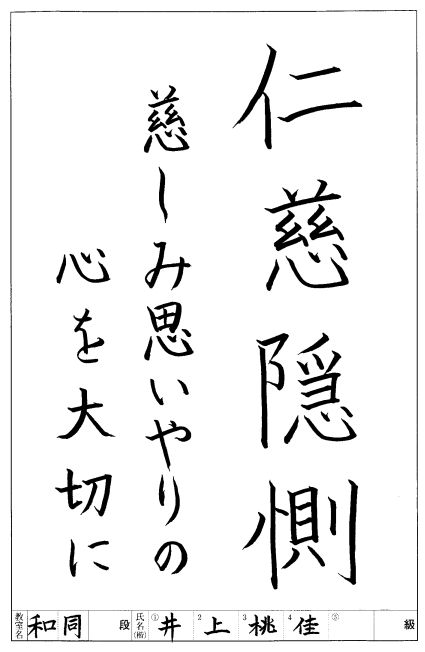 仁慈隠惻
慈しみ思いやりの
心を大切に
教室名 和同 段 氏名(横) ① 井 2 上 3 桃 4 佳 ⑤ 級